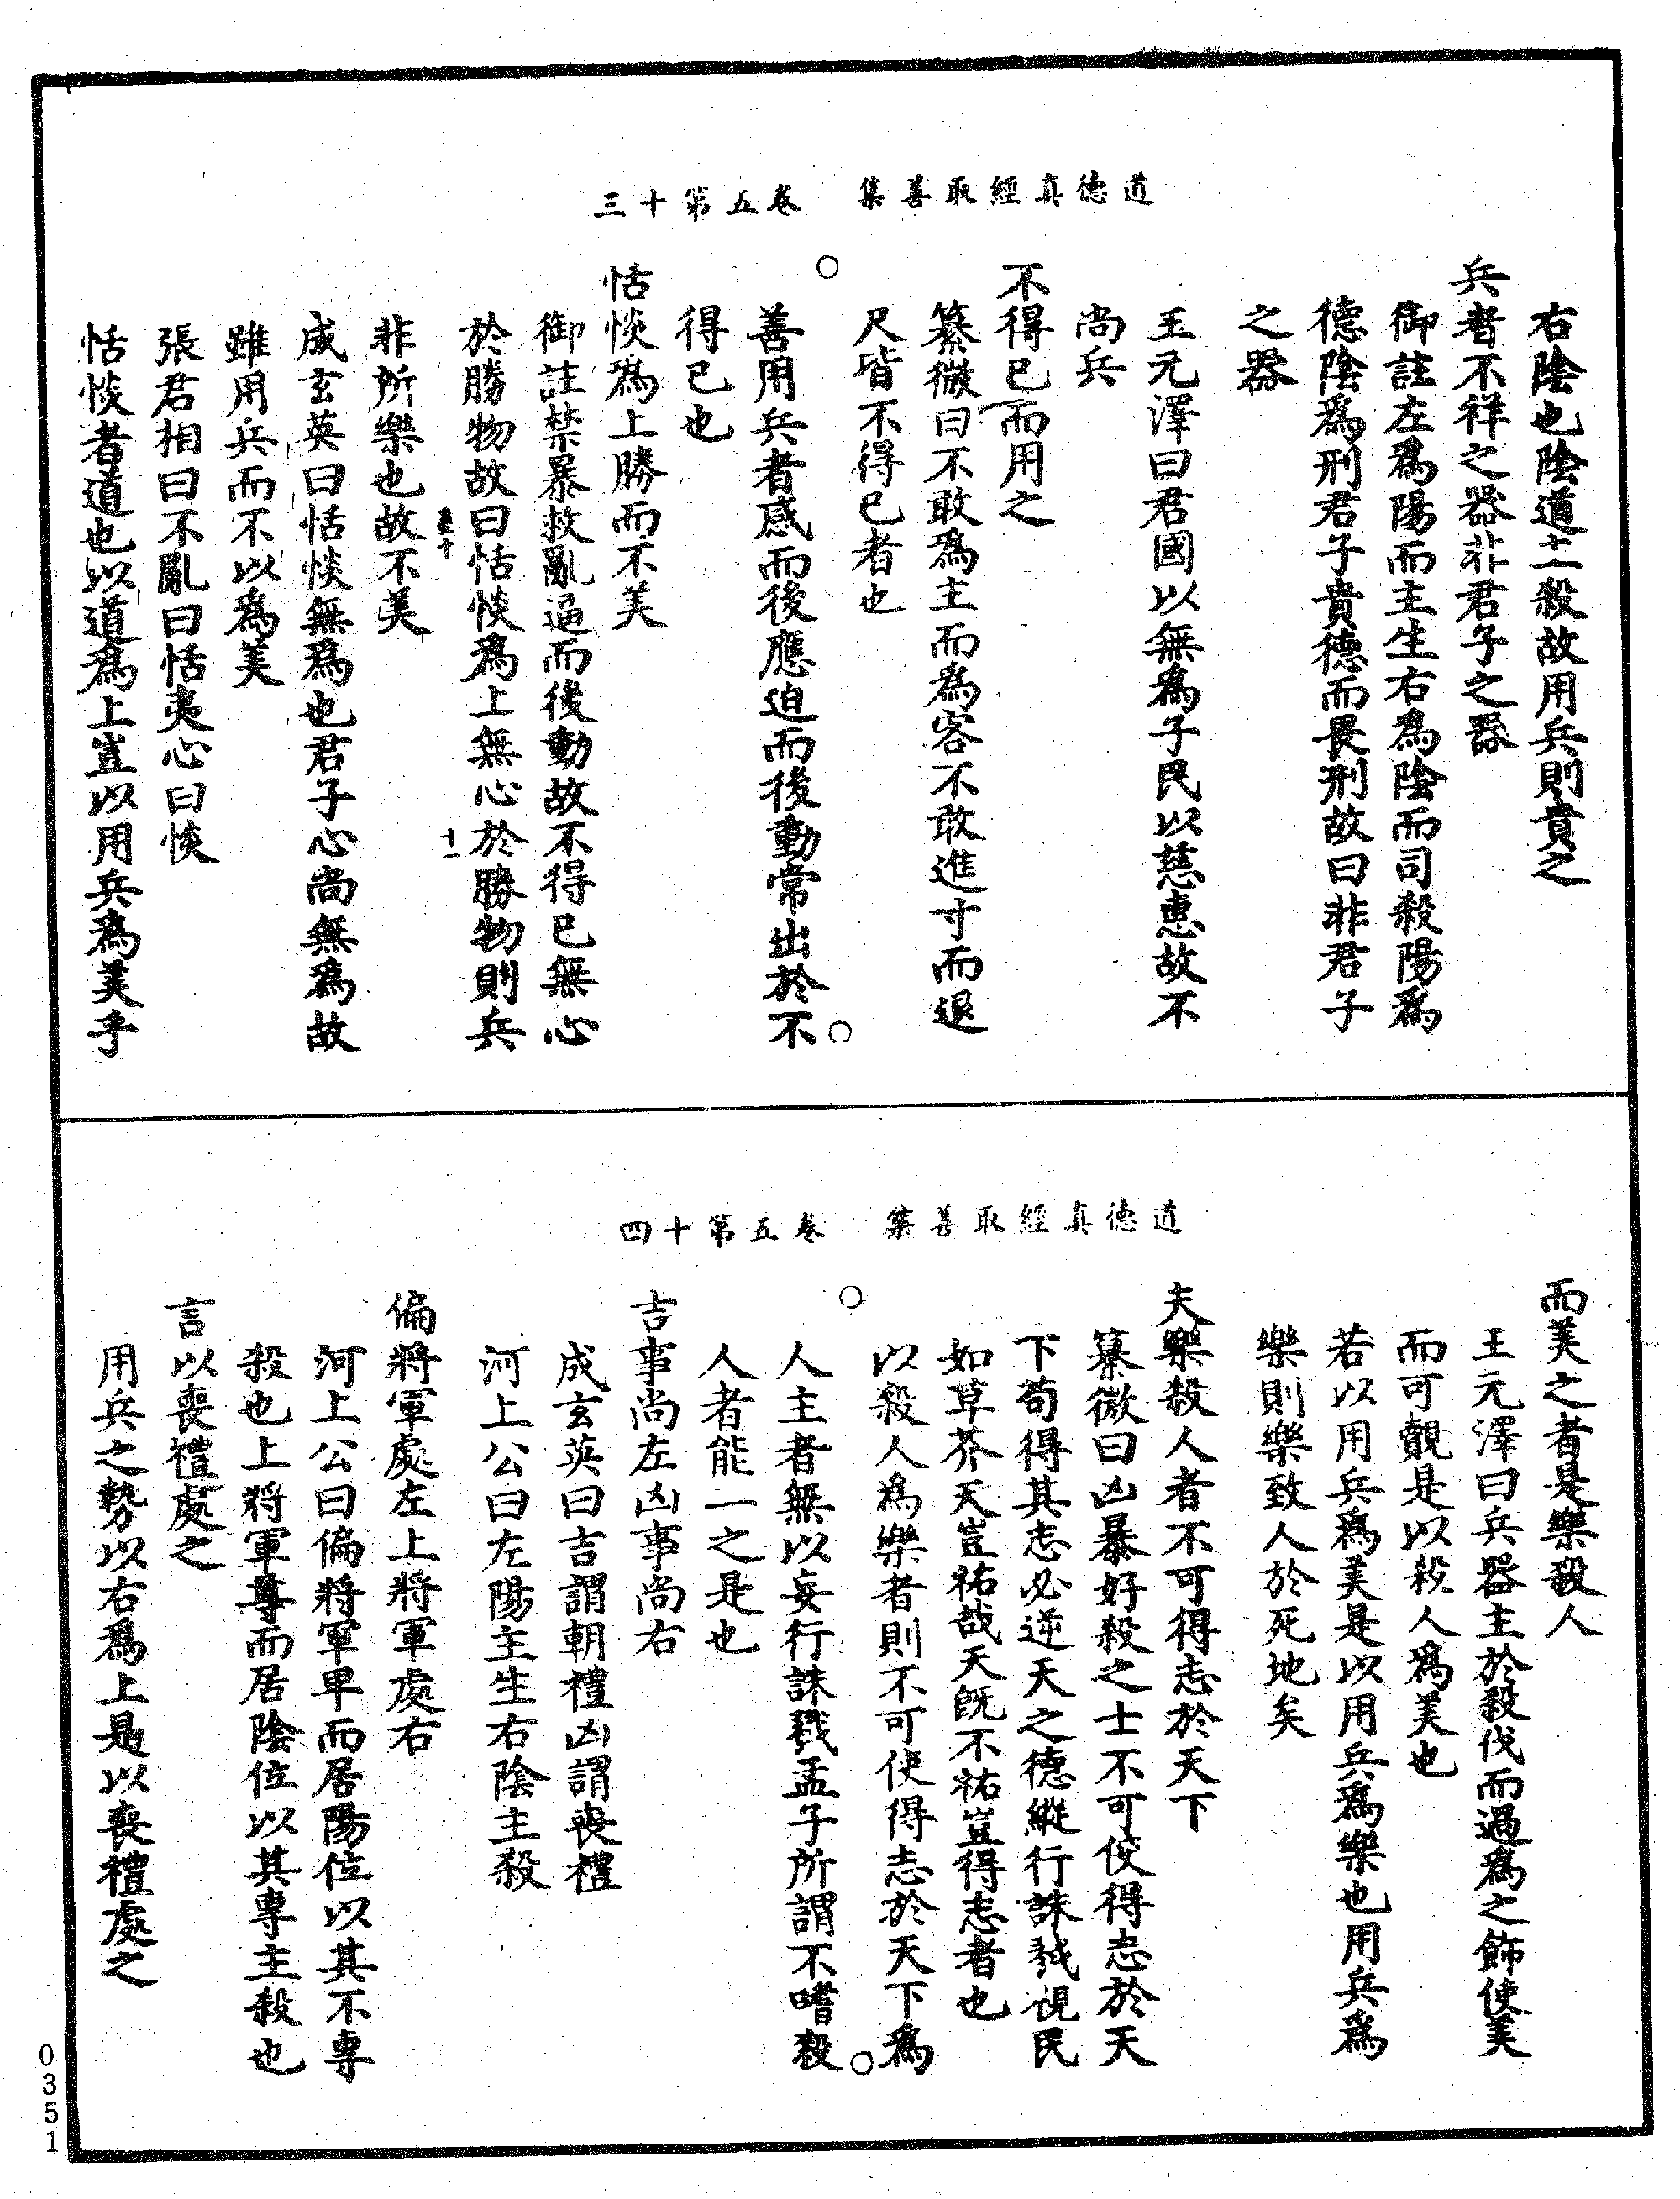 道德真經取善集　卷五第十三
右陰也陰道主殺故用兵則貴之
兵者不祥之器非君子之器
御註左為陽而主生右為陰而司殺陽為
德陰為刑君子貴德而畏刑故曰非君子
之器
王元澤曰君國以無為子民以慈惠故不
尚兵
不得已而用之
纂微曰不敢為主而為客不敢進寸而退
尺皆不得已者也
○
○
善用兵者感而後應迫而後動常出於不
得已也
恬惔為上勝而不美
御註禁暴救亂逼而後動故不得已無心
於勝物故曰恬惔為上無心於勝物則兵
十一
非所樂也故不美
成玄英曰恬惔無為也君子心尚無為故
雖用兵而不以為美
張君相曰不亂曰恬夷心曰惔
恬惔者道也以道為上豈以用兵為美乎
道德真經取善集　卷五第十四
而美之者是樂殺人
王元澤曰兵器主於殺伐而過為之飾使美
而可覿是以殺人為美也
若以用兵為美是以用兵為樂也用兵為
樂則樂致人於死地矣
夫樂殺人者不可得志於天下
纂微曰凶暴好殺之士不可使得志於天
下苟得其志必逆天之德縱行誅戮視民
如草芥天豈祐哉天既不祐豈得志者也
以殺人為樂者則不可使得志於天下為
○
○
人主者無以妄行誅戮孟子所謂不嗜殺
人者能一之是也
吉事尚左凶事尚右
成玄英曰吉謂朝禮凶謂喪禮
河上公曰左陽主生右陰主殺
偏將軍處左上將軍處右
河上公曰偏將軍卑而居陽位以其不專
殺也上將軍尊而居陰位以其專主殺也
言以喪禮處之
用兵之勢以右為上是以喪禮處之
0351